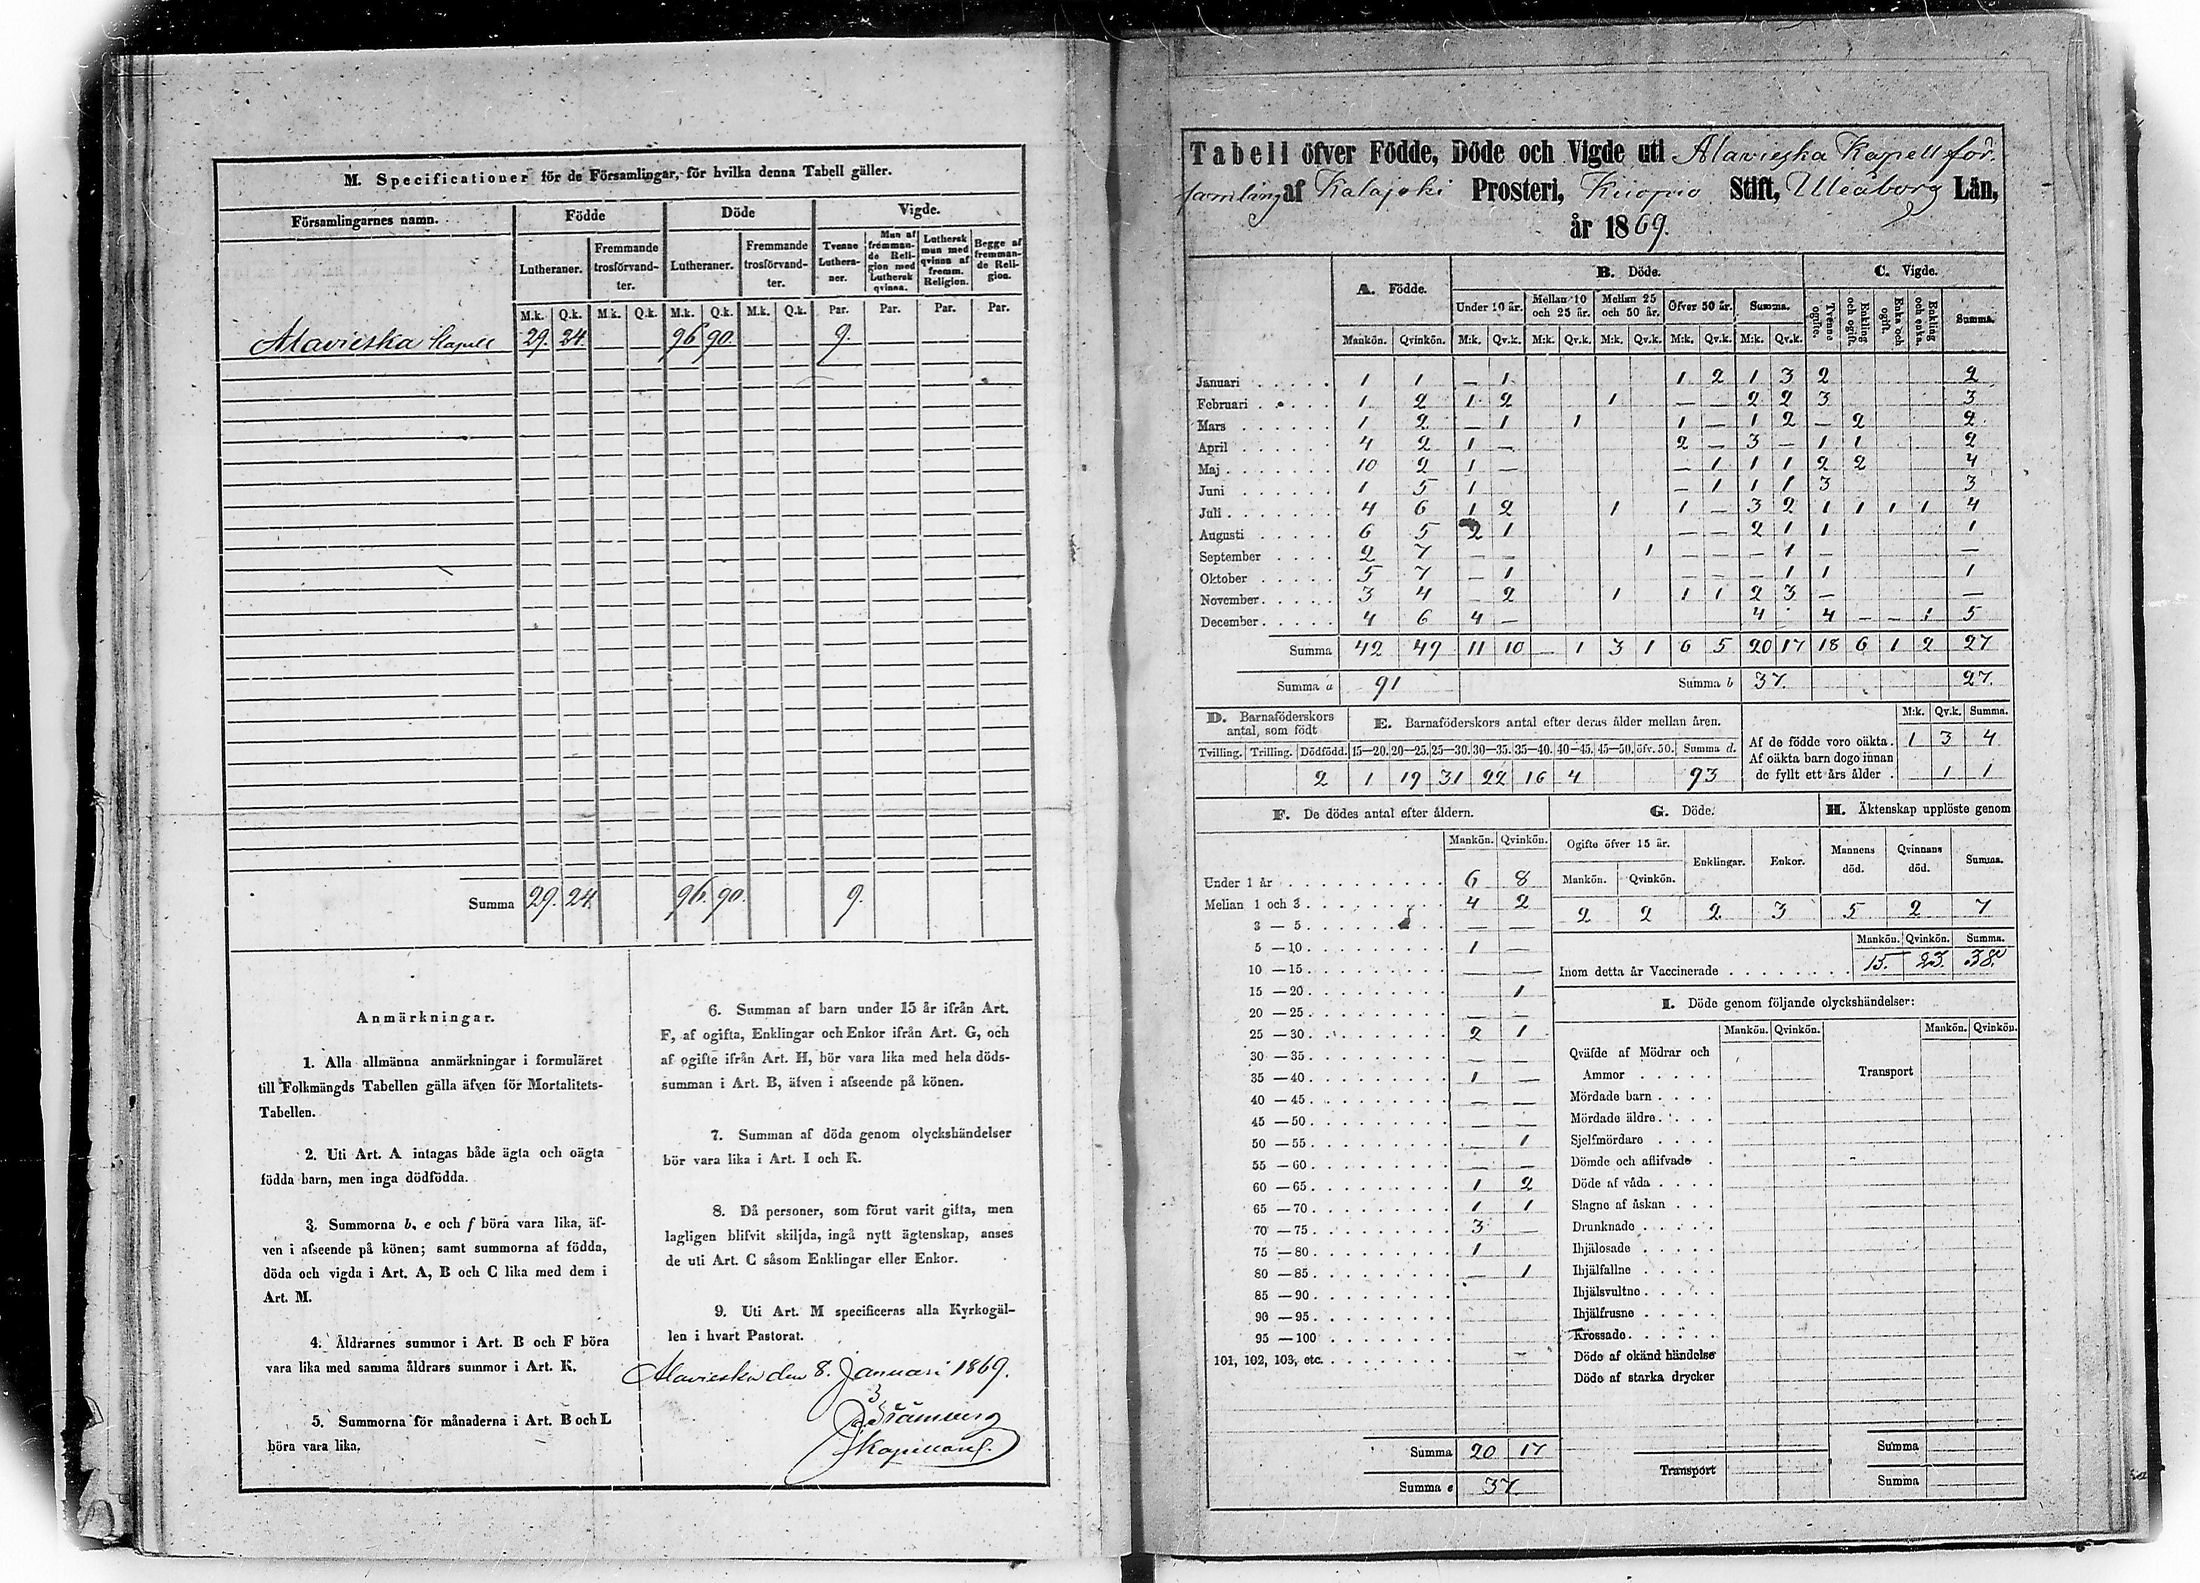 M. Specificationer för de Församlingar, för hvilka denna Tabell gäller.
Församlingarnes namn. Födde Döde Vigde.
Lutheraner. Fremmande trosförvandter. Lutheraner. Fremmande trosförvandter. Tvenne Lutheraner. Man af fremmande Religion med Luthersk qvinna. Luthersk man med qvinna af fremm. Religion. Begge af fremmande Religion.
M.k. Q.k. M.k. Q.k. M.k. Q.k. M.k. Q.k. Par. Par. Par. Par.
Alavieska Kapell 29. 24. 96 90. 9.
Summa 29. 24. 96. 90. 9.
Anmärkningar.
1. Alla allmänna anmärkningar i formuläret
till Folkmängds Tabellen gälla äfven för Mortalitets-
Tabellen.
2. Uti Art. A intagas både ägta och oägta
födda barn, men inga dödfödda.
3. Summorna b, e och f böra vara lika, äf-
ven i afseende på könen; samt summorna af födda,
döda och vigda i Art. A, B och C lika med dem i
Art. M.
4. Åldrarnes summor i Art. B och F böra
vara lika med samma åldrars summor i Art. K.
5. Summorna för månaderna i Art. B och L
böra vara lika.
6. Summan af barn under 15 år ifrån Art.
F, af ogifta, Enklingar och Enkor ifrån Art. G, och
af ogifte ifrån Art. H, bör vara lika med hela döds-
summan i Art. B, äfven i afseende på könen.
7. Summan af döda genom olyckshändelser
bör vara lika i Art. I och K.
8. Då personer, som förut varit gifta, men
lagligen blifvit skiljda, ingå nytt ägtenskap, anses
de uti Art. C såsom Enklingar eller Enkor.
9. Uti Art. M specificeras alla Kyrkogäl-
len i hvart Pastorat.
Alavieska den 8. Januari 1869.
Kapellan.
Tabell öfver Födde, Döde och Vigde uti Alavieska Kapell för-
samling af Kalajoki Prosteri, Kuopio Stift, Uleåborg Län,
år 1869.
A. Födde. B. Döde. C. Vigde.
Under 10 år. Mellan 10 och 25 år. Mellan 25 och 50 år. Öfver 50 år. Summa. Tvenne ogifte. Enkling och ogift. Enka och ogift. Enkling och enka. Summa.
Mankön. Qvinkön. M:k. Qv.k. M:k. Qv.k. M:k. Qv.k. M:k. Qv.k. M:k. Qv.k.
Januari 1 1 — 1 1 2 1 3 2 2
Februari 1 2 1 2 1 — — 2 2 3 3
Mars 1 2 — 1 1 1 — 1 2 — 2 2
April 4 2 1 — 2 — 3 — 1 1 2
Maj 10 2 1 — — 1 1 1 2 2 4
Juni 1 5 1 — 1 1 1 3 3
Juli 4 6 1 2 1 1 — 3 2 1 1 1 1 4
Augusti 6 5 2 1 — — 2 1 1 1
September 2 7 — — 1 — — — 1 — —
Oktober 5 7 — 1 — — — 1 1 1
November 3 4 — 2 1 1 1 2 3 — —
December 4 6 4 — 4 4 — — 1 5
Summa 42 49 11 10 — 1 3 1 6 5 20 17 18 6 1 2 27
Summa a 91 Summa b 37. 27.
D. Barnaföderskors antal, som födt E. Barnaföderskors antal efter deras ålder mellan åren. M:k. Qv.k. Summa.
Tvilling. Trilling. Dödfödd. 15—20. 20—25. 25—30. 30—35. 35—40. 40—45. 45—50. öfv. 50. Summa d.
2 1 19 31 22 16 4 93
Af de födde voro oäkta. 1 3 4
Af oäkta barn dogo innan
de fyllt ett års ålder . 1 1
F. De dödes antal efter åldern.
Mankön. Qvinkön.
Under 1 år 6 8
Mellan 1 och 3 4 2
3 — 5 — —
5 — 10 1 —
10 — 15 — —
15 — 20 1
20 — 25 — —
25 — 30 2 1
30 — 35 — —
35 — 40 1 —
40 — 45 — —
45 — 50 — —
50 — 55 — 1
55 — 60 — —
60 — 65 1 2
65 — 70 1 1
70 — 75 3 —
75 — 80 1
80 — 85 — 1
85 — 90
90 — 95
95 — 100
101, 102, 103, etc.
Summa 20 17
Summa e 37.
G. Döde.
Ogifte öfver 15 år. Enklingar. Enkor.
Mankön. Qvinkön.
2 2 2 3
H. Äktenskap upplöste genom
Mannens död. Qvinnans död. Summa.
5 2 7
Mankön. Qvinkön. Summa.
Inom detta år Vaccinerade 15. 23. 38.
I. Döde genom följande olyckshändelser:
Mankön. Qvinkön. Mankön. Qvinkön.
Qväfde af Mödrar och
Ammor Transport
Mördade barn
Mördade äldre
Sjelfmördare
Dömde och aflifvade
Döde af våda
Slagne af åskan
Drunknade
Ihjälosade
Ihjälfallne
Ihjälsvultne
Ihjälfrusne
Krossade
Döde af okänd händelse
Döde af starka drycker
Summa
Transport
Summa